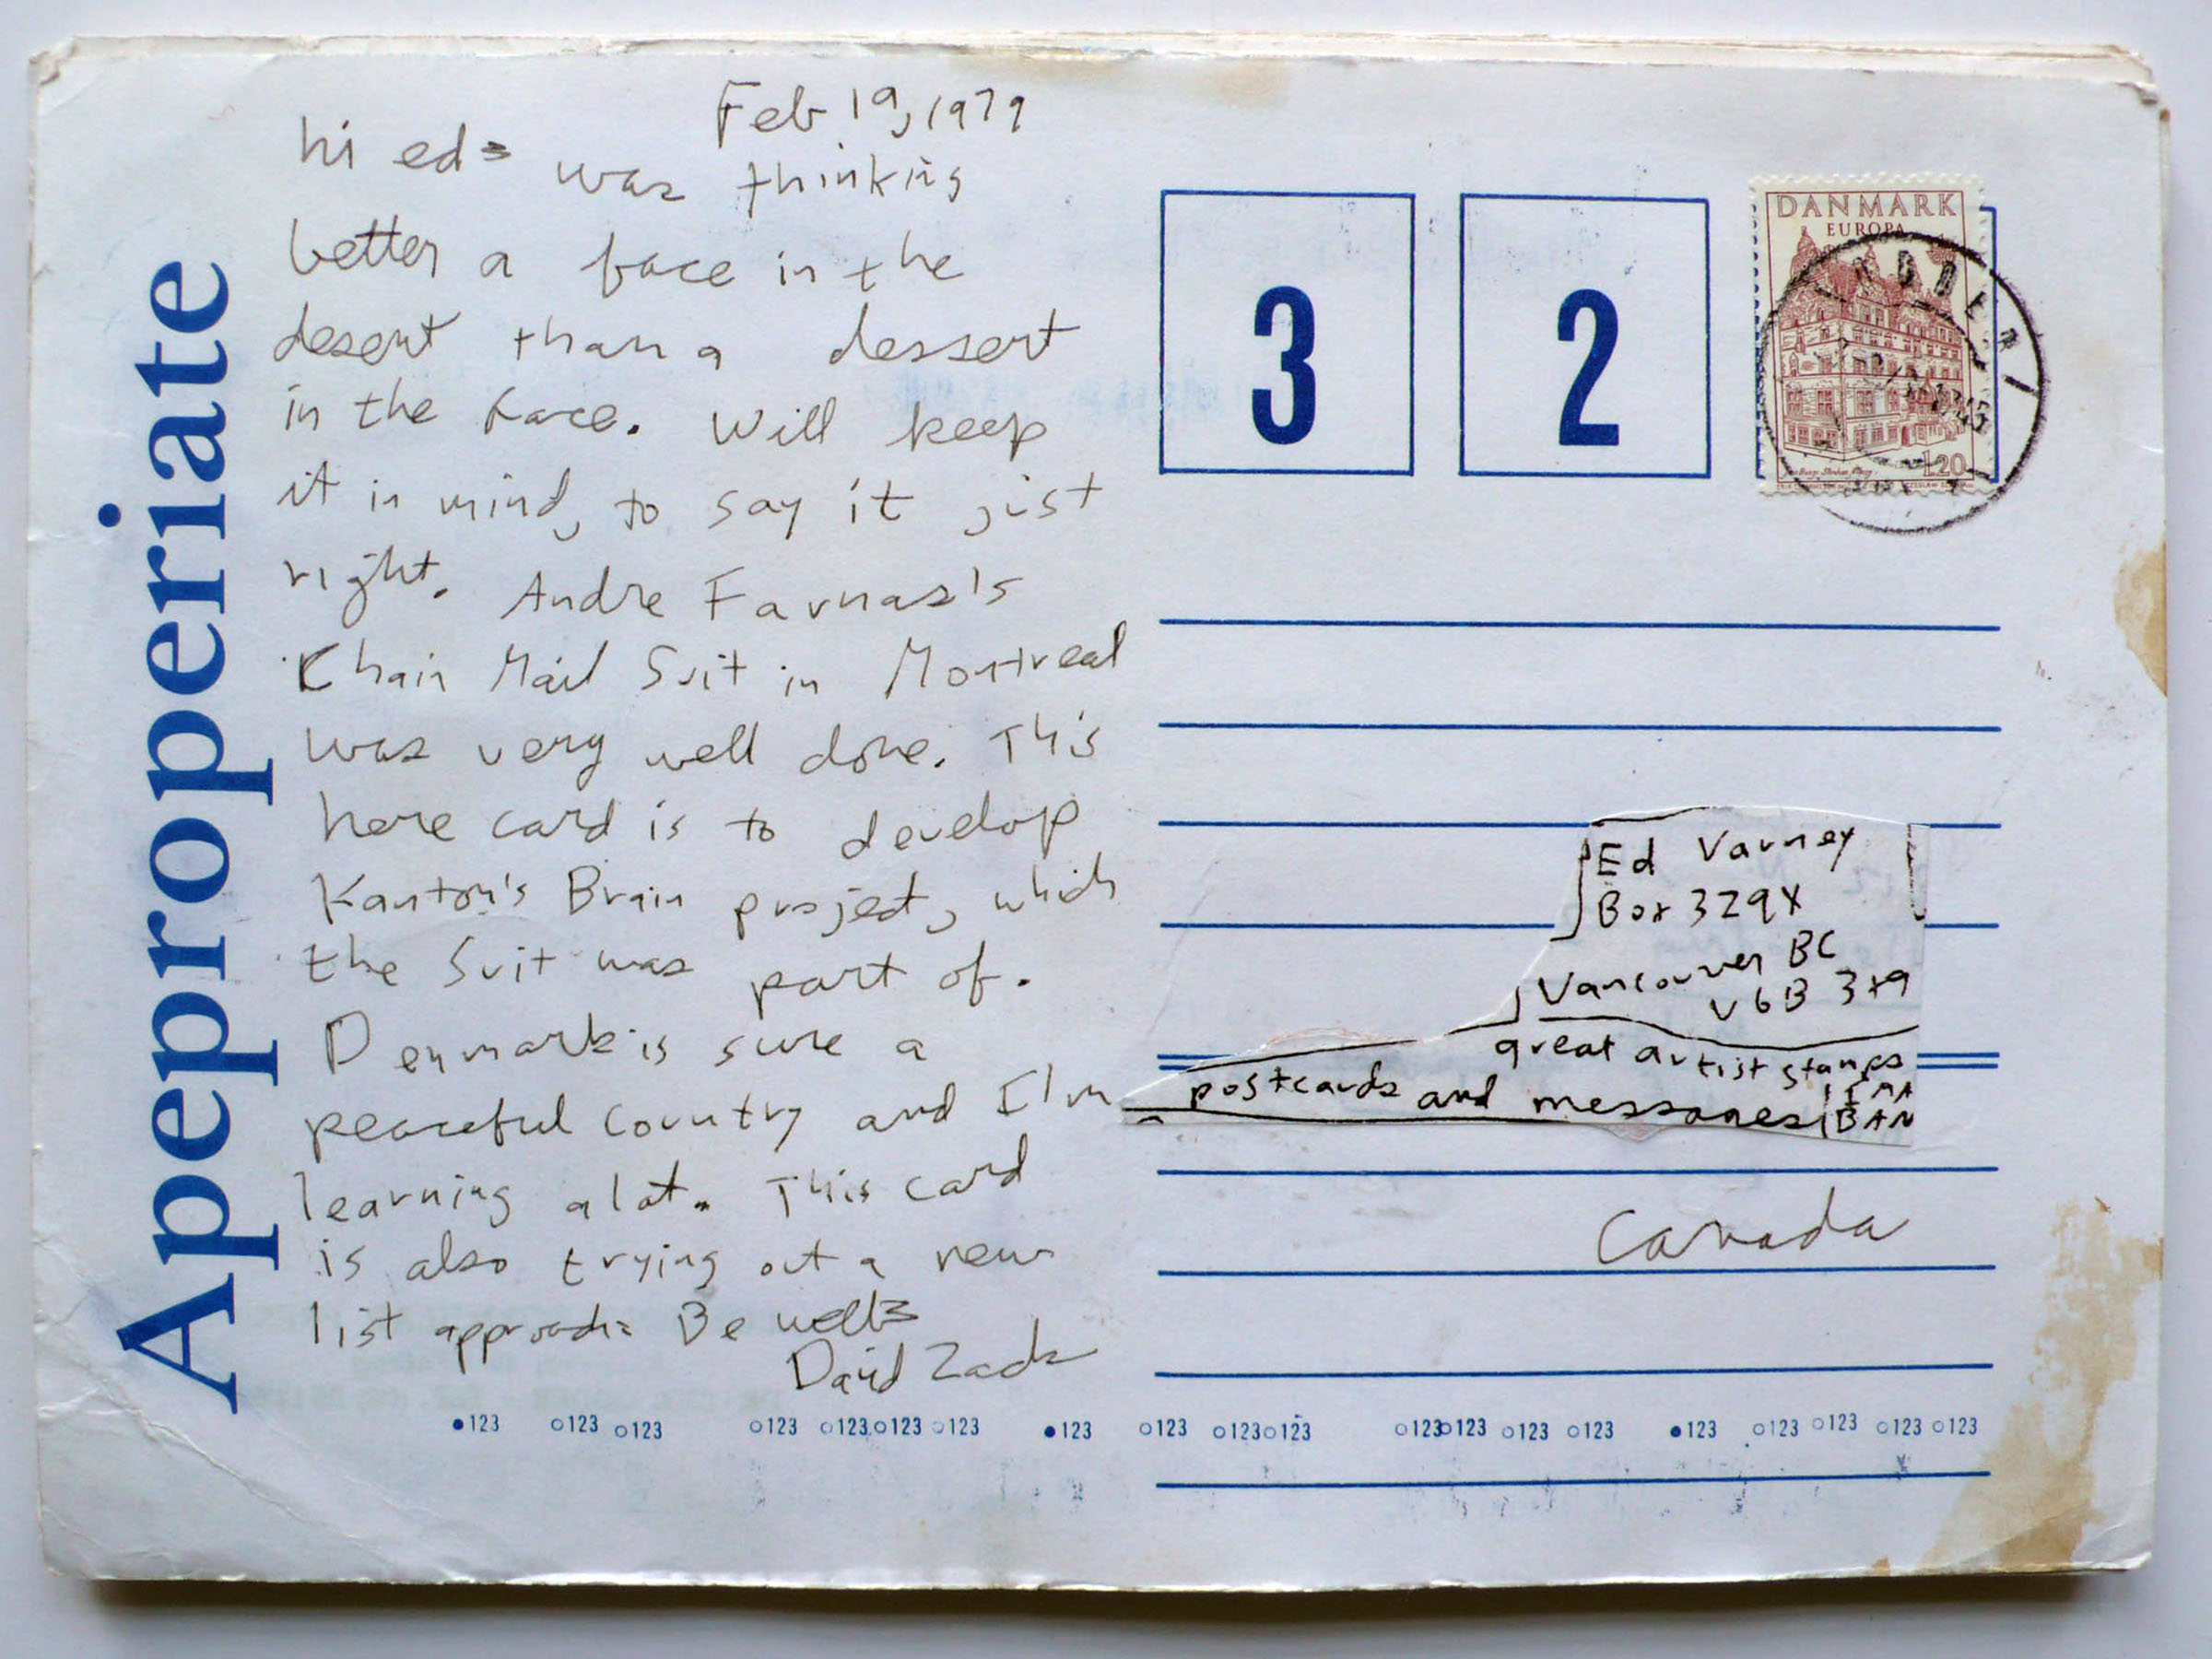 Apeproperiate
Feb 19, 1979
hi ed= was thinking
better a face in the
desert than a dessert
in the face. Will keep
it in mind, to say it jist
right. Andre Farnas's
Chain Mail Suit in Montreal
was very well done. This
here card is to develop
Kantor's Brain project, which
the Suit was part of.
Denmark is sure a
peaceful country and I'm
learning alot. This card
is also trying out a new
list approach= Be well=
David Zack
3 2
DANMARK
EUROPA
120
Ed Varney
Box 329X
Vancouver BC
V6B 3X9
great artist stamps
postcards and messages
BAN
Canada
●123 ○123 ○123 ○123 ○123 ○123 ○123 ●123 ○123 ○123 ○123 ○123 ○123 ○123 ○123 ●123 ○123 ○123 ○123 ○123